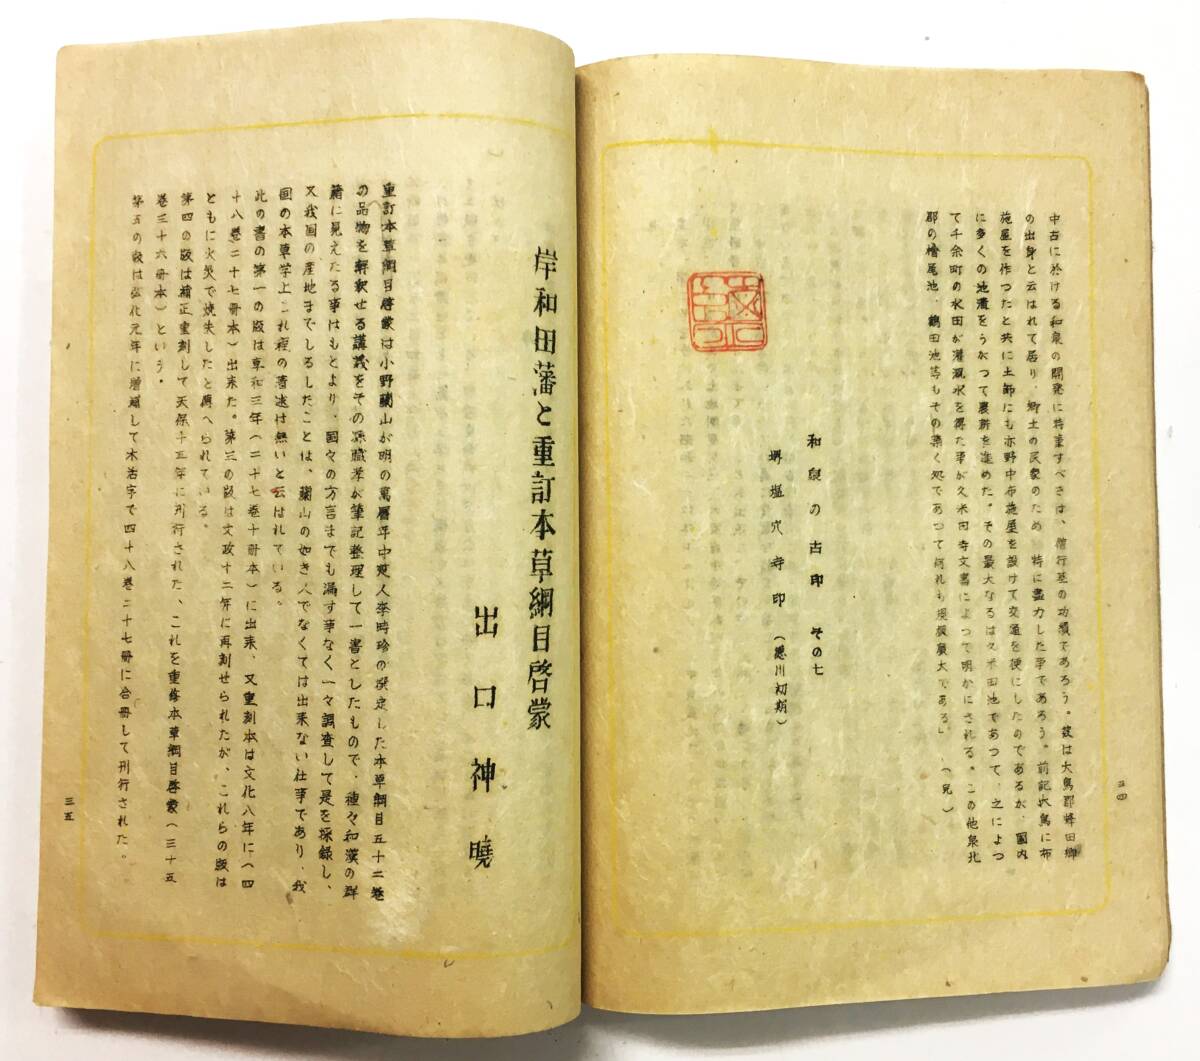 中古に於ける和泉の開発に特筆すべきは、僧行基の功績であろう。彼は大鳥郡蜂田郷
の出身と云はれて居り、郷土の民衆のため、特に盡力した事であろう。前記大鳥に布
施屋を作つたと共に土師にも亦野中布施屋を設けて交通を便にしたのであるが、国内
に多くの池溝をうがつて農耕を進めた。その最大なるは久米田池であつて、之によつ
て千余町の水田が灌漑水を得た事が久米田寺文書によつて明かにされる。この他泉北
郡の檜尾池、鶴田池等もその築く処であつて何れも規模廣大である。」（兒）
和泉の古印　その七
堺塩穴寺印（徳川初期）
三四
岸和田藩と重訂本草綱目啓蒙
出口神曉
重訂本草綱目啓蒙は小野蘭山が明の萬暦年中楚人李時珍の撰定した本草綱目五十二巻
の品物を解釈せる講義をその孫職孝が筆記整理して一書としたもので、種々和漢の群
籍に見えたる事はもとより、国々の方言までも漏す事なく一々調査して是を採録し、
又我国の産地までしるしたことは、蘭山の如き人でなくては出来ない仕事であり、我
国の本草学上これ程の著述は無いと云はれている。
此の書の第一の版は享和三年（二十七巻十冊本）に出来、又重刻本は文化八年に（四
十八巻二十七冊本）出来た。第三の版は文政十二年に再刻せられたが、これらの版は
ともに火災で焼失したと傳へられている。
第四の版は補正重刻して天保十五年に刊行された、これを重修本草綱目啓蒙（三十五
巻三十六冊本）という。
第五の版は弘化元年に増補して木活字で四十八巻二十七冊に合冊して刊行された。
三五